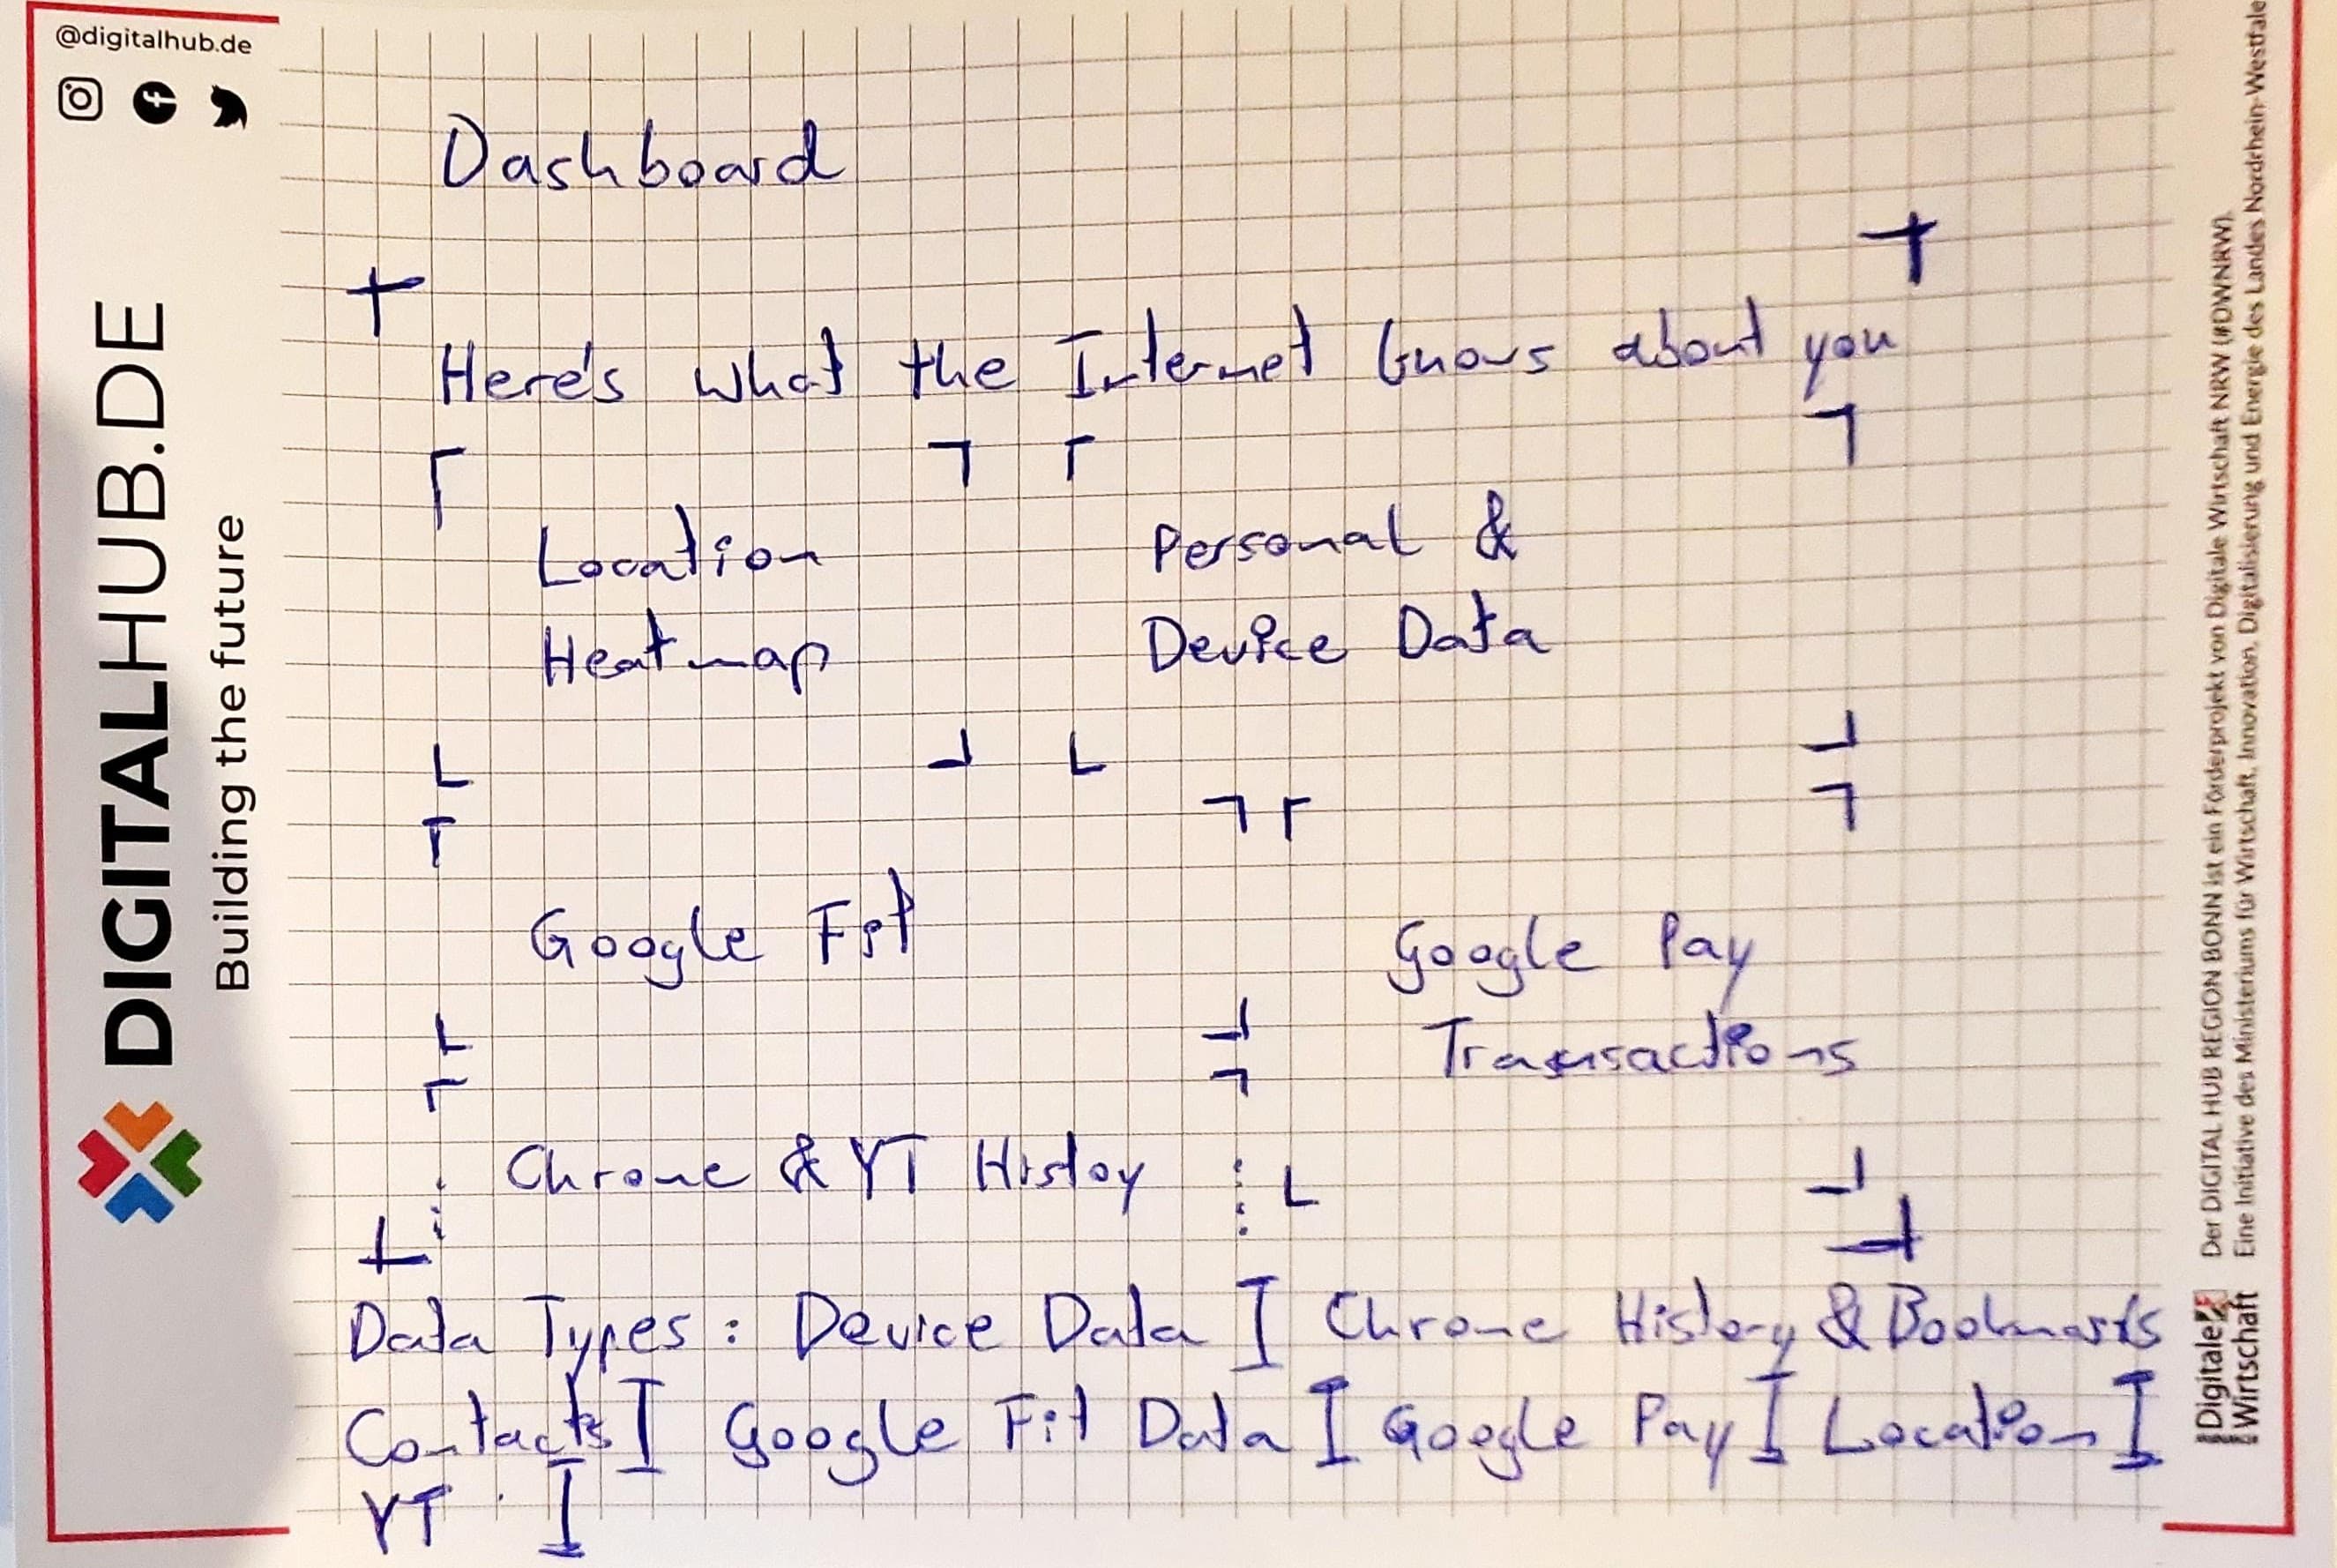 @digitalhub.de
DIGITALHUB.DE
Building the future
Dashboard
Here's what the Internet knows about you
Location
Heatmap
Personal &
Device Data
Google Fit
Google Pay
Transactions
Chrome & YT Histoy
Data Types: Device Data I Chrome History & Bookmarks
Contacts I Google Fit Data I Google Pay I Location I
YT I
Der DIGITAL HUB REGION BONN ist ein Förderprojekt von Digitale Wirtschaft NRW (#DWNRW).
Eine Initiative des Ministeriums für Wirtschaft, Innovation, Digitalisierung und Energie des Landes Nordrhein-Westfale
Digitale
Wirtschaft